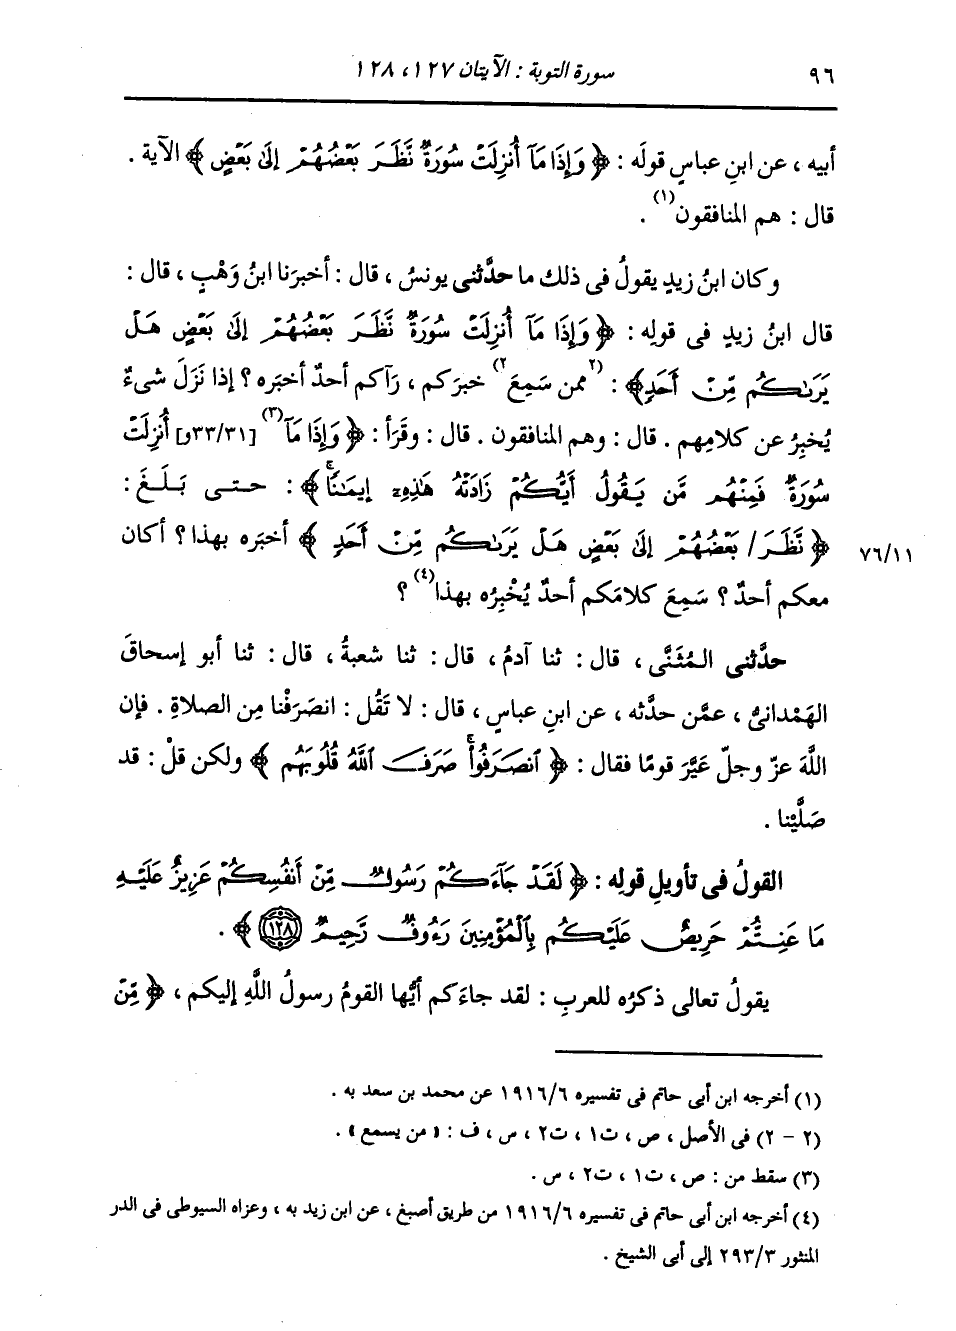 ٩٦ سورة التوبة : الآيتان ١٢٧، ١٢٨
أبيه ، عن ابنِ عباسٍ قولَه : ﴿ وَإِذَا مَآ أُنزِلَتْ سُورَةٌ نَّظَرَ بَعْضُهُمْ إِلَىٰ بَعْضٍ ﴾ الآية .
قال : هم المنافقون(١) .
وكان ابنُ زيدٍ يقولُ فى ذلك ما حدَّثنى يونسُ ، قال : أخبرَنا ابنُ وَهْبٍ ، قال :
قال ابنُ زيدٍ فى قولِه : ﴿ وَإِذَا مَآ أُنزِلَتْ سُورَةٌ نَّظَرَ بَعْضُهُمْ إِلَىٰ بَعْضٍ هَلْ
يَرَىٰكُم مِّنْ أَحَدٍ﴾ : (٢ ممن سَمِعَ ٢) خبرَكم ، رَآكم أحدٌ أخبَره ؟ إذا نَزَلَ شىءٌ
يُخبِرُ عن كلامِهم . قال : وهم المنافقون . قال : وقَرَأ : ﴿ وَإِذَا مَآ(٣) [٣٣/٣١و] أُنزِلَتْ
سُورَةٌ فَمِنْهُم مَّن يَقُولُ أَيُّكُمْ زَادَتْهُ هَٰذِهِۦٓ إِيمَٰنًاۚ ﴾ : حتى بَلَغَ :
﴿ نَّظَرَ / بَعْضُهُمْ إِلَىٰ بَعْضٍ هَلْ يَرَىٰكُم مِّنْ أَحَدٍ ﴾ أخبَره بهذا ؟ أكان ٧٦/١١
معكم أحدٌ ؟ سَمِعَ كلامَكم أحدٌ يُخْبِرُه بهذا(٤) ؟
حدَّثنى المُثَنَّى ، قال : ثنا آدمُ ، قال : ثنا شعبةُ ، قال : ثنا أبو إسحاقَ
الهَمْدانىُّ ، عمَّن حدَّثه ، عن ابنِ عباسٍ ، قال : لا تَقُل : انصَرَفْنا مِن الصلاةِ . فإن
اللَّهَ عزّ وجلّ عَيَّرَ قومًا فقال : ﴿ ٱنصَرَفُواْۚ صَرَفَ ٱللَّهُ قُلُوبَهُم ﴾ ولكن قلْ : قد
صَلَّيْنا .
القولُ فى تأويلِ قولِه : ﴿ لَقَدْ جَآءَكُمْ رَسُولٌ مِّنْ أَنفُسِكُمْ عَزِيزٌ عَلَيْهِ
مَا عَنِتُّمْ حَرِيصٌ عَلَيْكُم بِٱلْمُؤْمِنِينَ رَءُوفٌ رَّحِيمٌ ١٢٨ ﴾ .
يقولُ تعالى ذكرُه للعربِ : لقد جاءَكم أيُّها القومُ رسولُ اللَّهِ إليكم ، ﴿ مِّنْ
(١) أخرجه ابن أبى حاتم فى تفسيره ١٩١٦/٦ عن محمد بن سعد به .
(٢ - ٢) فى الأصل ، ص ، ت١ ، ت٢ ، س ، ف : « من يسمع » .
(٣) سقط من : ص ، ت١ ، ت٢ ، س .
(٤) أخرجه ابن أبى حاتم فى تفسيره ١٩١٦/٦ من طريق أصبغ ، عن ابن زيد به ، وعزاه السيوطى فى الدر
المنثور ٢٩٣/٣ إلى أبى الشيخ .